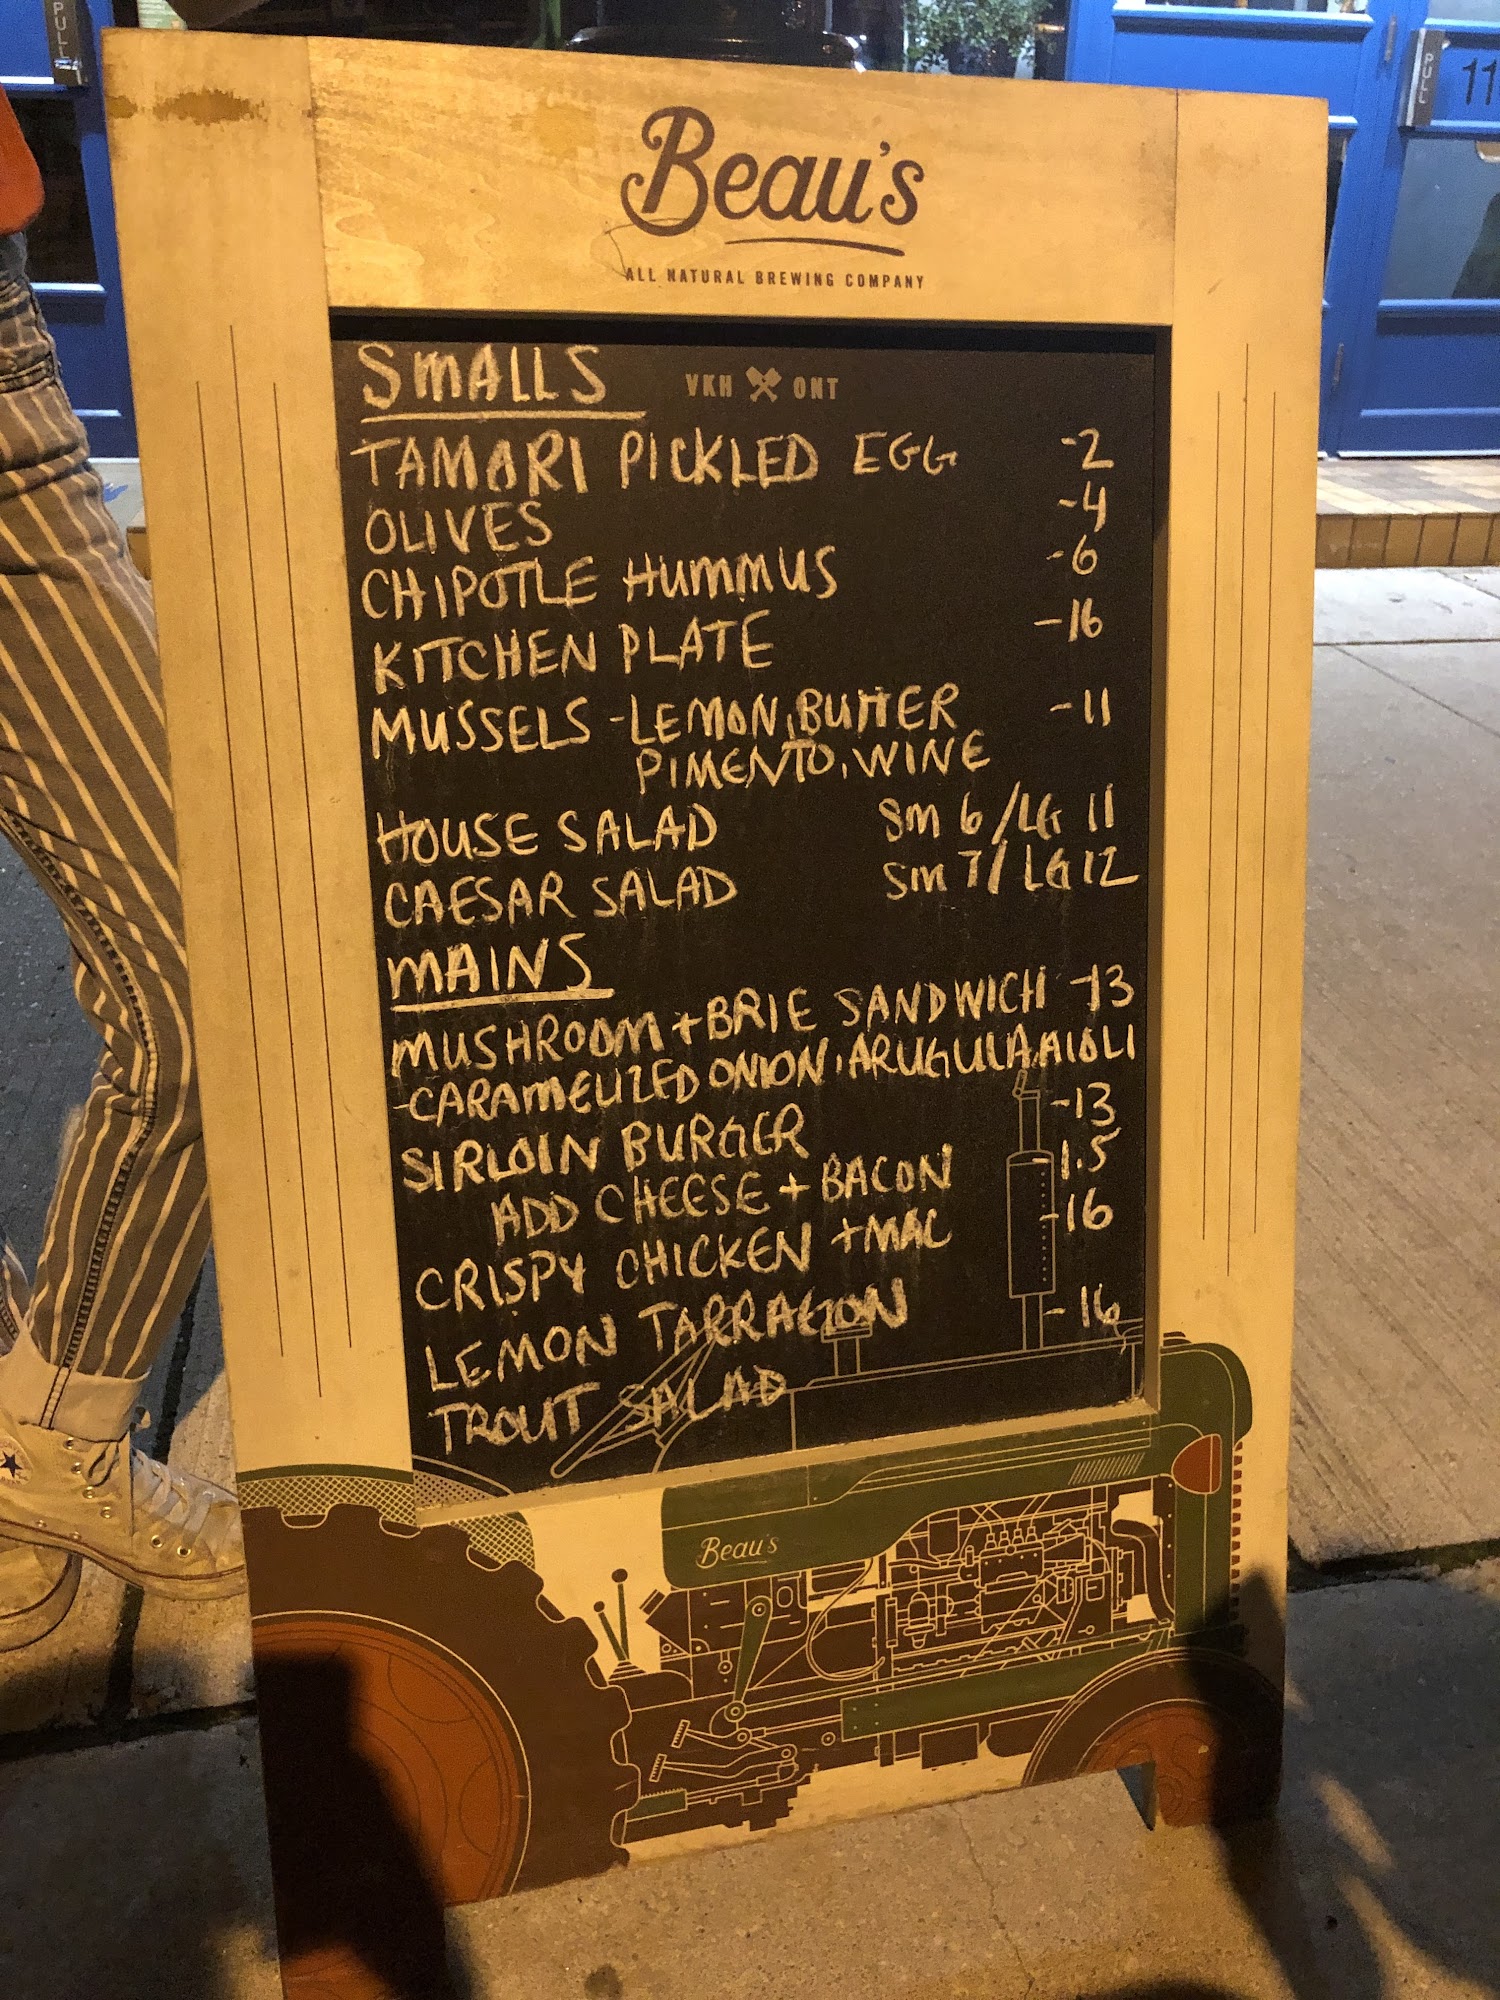 PULL
PULL
11
Beau's
ALL NATURAL BREWING COMPANY
SMALLS
VKH ONT
TAMARI PICKLED EGG -2
OLIVES -4
CHIPOTLE HUMMUS -6
KITCHEN PLATE -16
MUSSELS - LEMON, BUTTER -11
PIMENTO, WINE
HOUSE SALAD SM 6/LG 11
CAESAR SALAD SM 7/LG 12
MAINS
MUSHROOM + BRIE SANDWICH -13
-CARAMELIZED ONION, ARUGULA, AIOLI
SIRLOIN BURGER -13
ADD CHEESE + BACON 1.5
CRISPY CHICKEN + MAC -16
LEMON TARRAGON -16
TROUT SALAD
Beau's